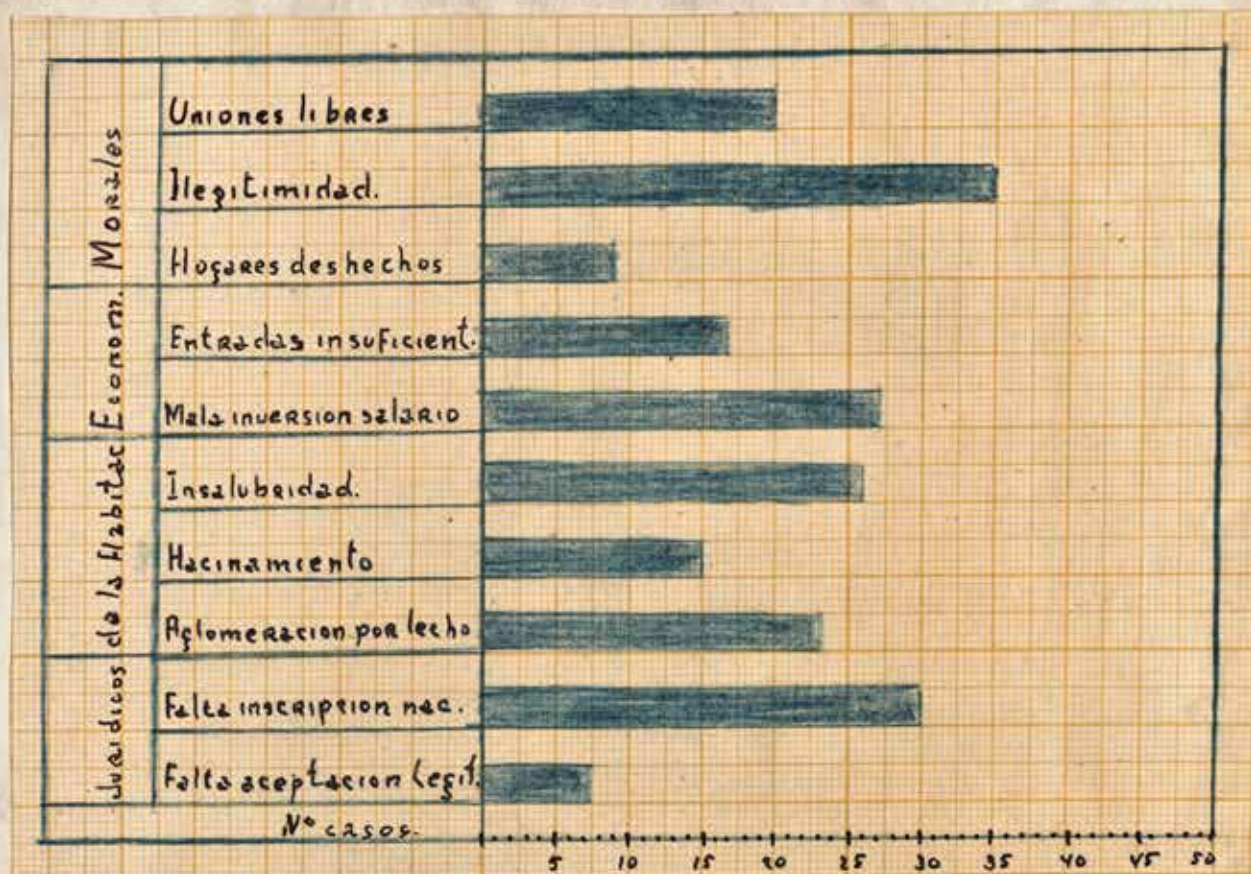 Morales
Uniones libres
Ilegitimidad.
Hogares deshechos
Econom.
Entradas insuficient.
Mala inversion salario
de la Habitac
Insalubridad.
Hacinamiento
Aglomeracion por lecho
Juridicos
Falta inscripcion nac.
Falta aceptacion Legit.
Nº casos.
5 10 15 20 25 30 35 40 45 50